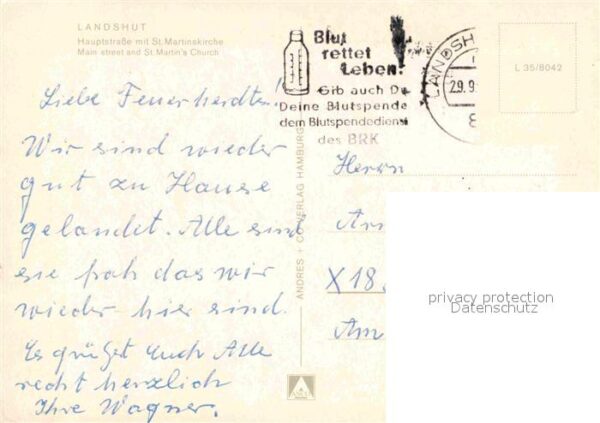 LANDSHUT
Hauptstraße mit St. Martinskirche
Main street and St. Martin's Church
Blut
rettet
Leben!
Gib auch Du
Deine Blutspende
dem Blutspendedienst
des BRK
LANDSH
29.9
8
L 35/8042
Liebe Feuerherdten!
Wir sind wieder
gut zu Hause
gelandet. Alle sind
sie froh das wir
wieder hier sind.
Es grüßet Euch Alle
recht herzlich
Ihre Wagner.
ANDRES + CO VERLAG HAMBURG
Herrn
X 18
Am
privacy protection
Datenschutz